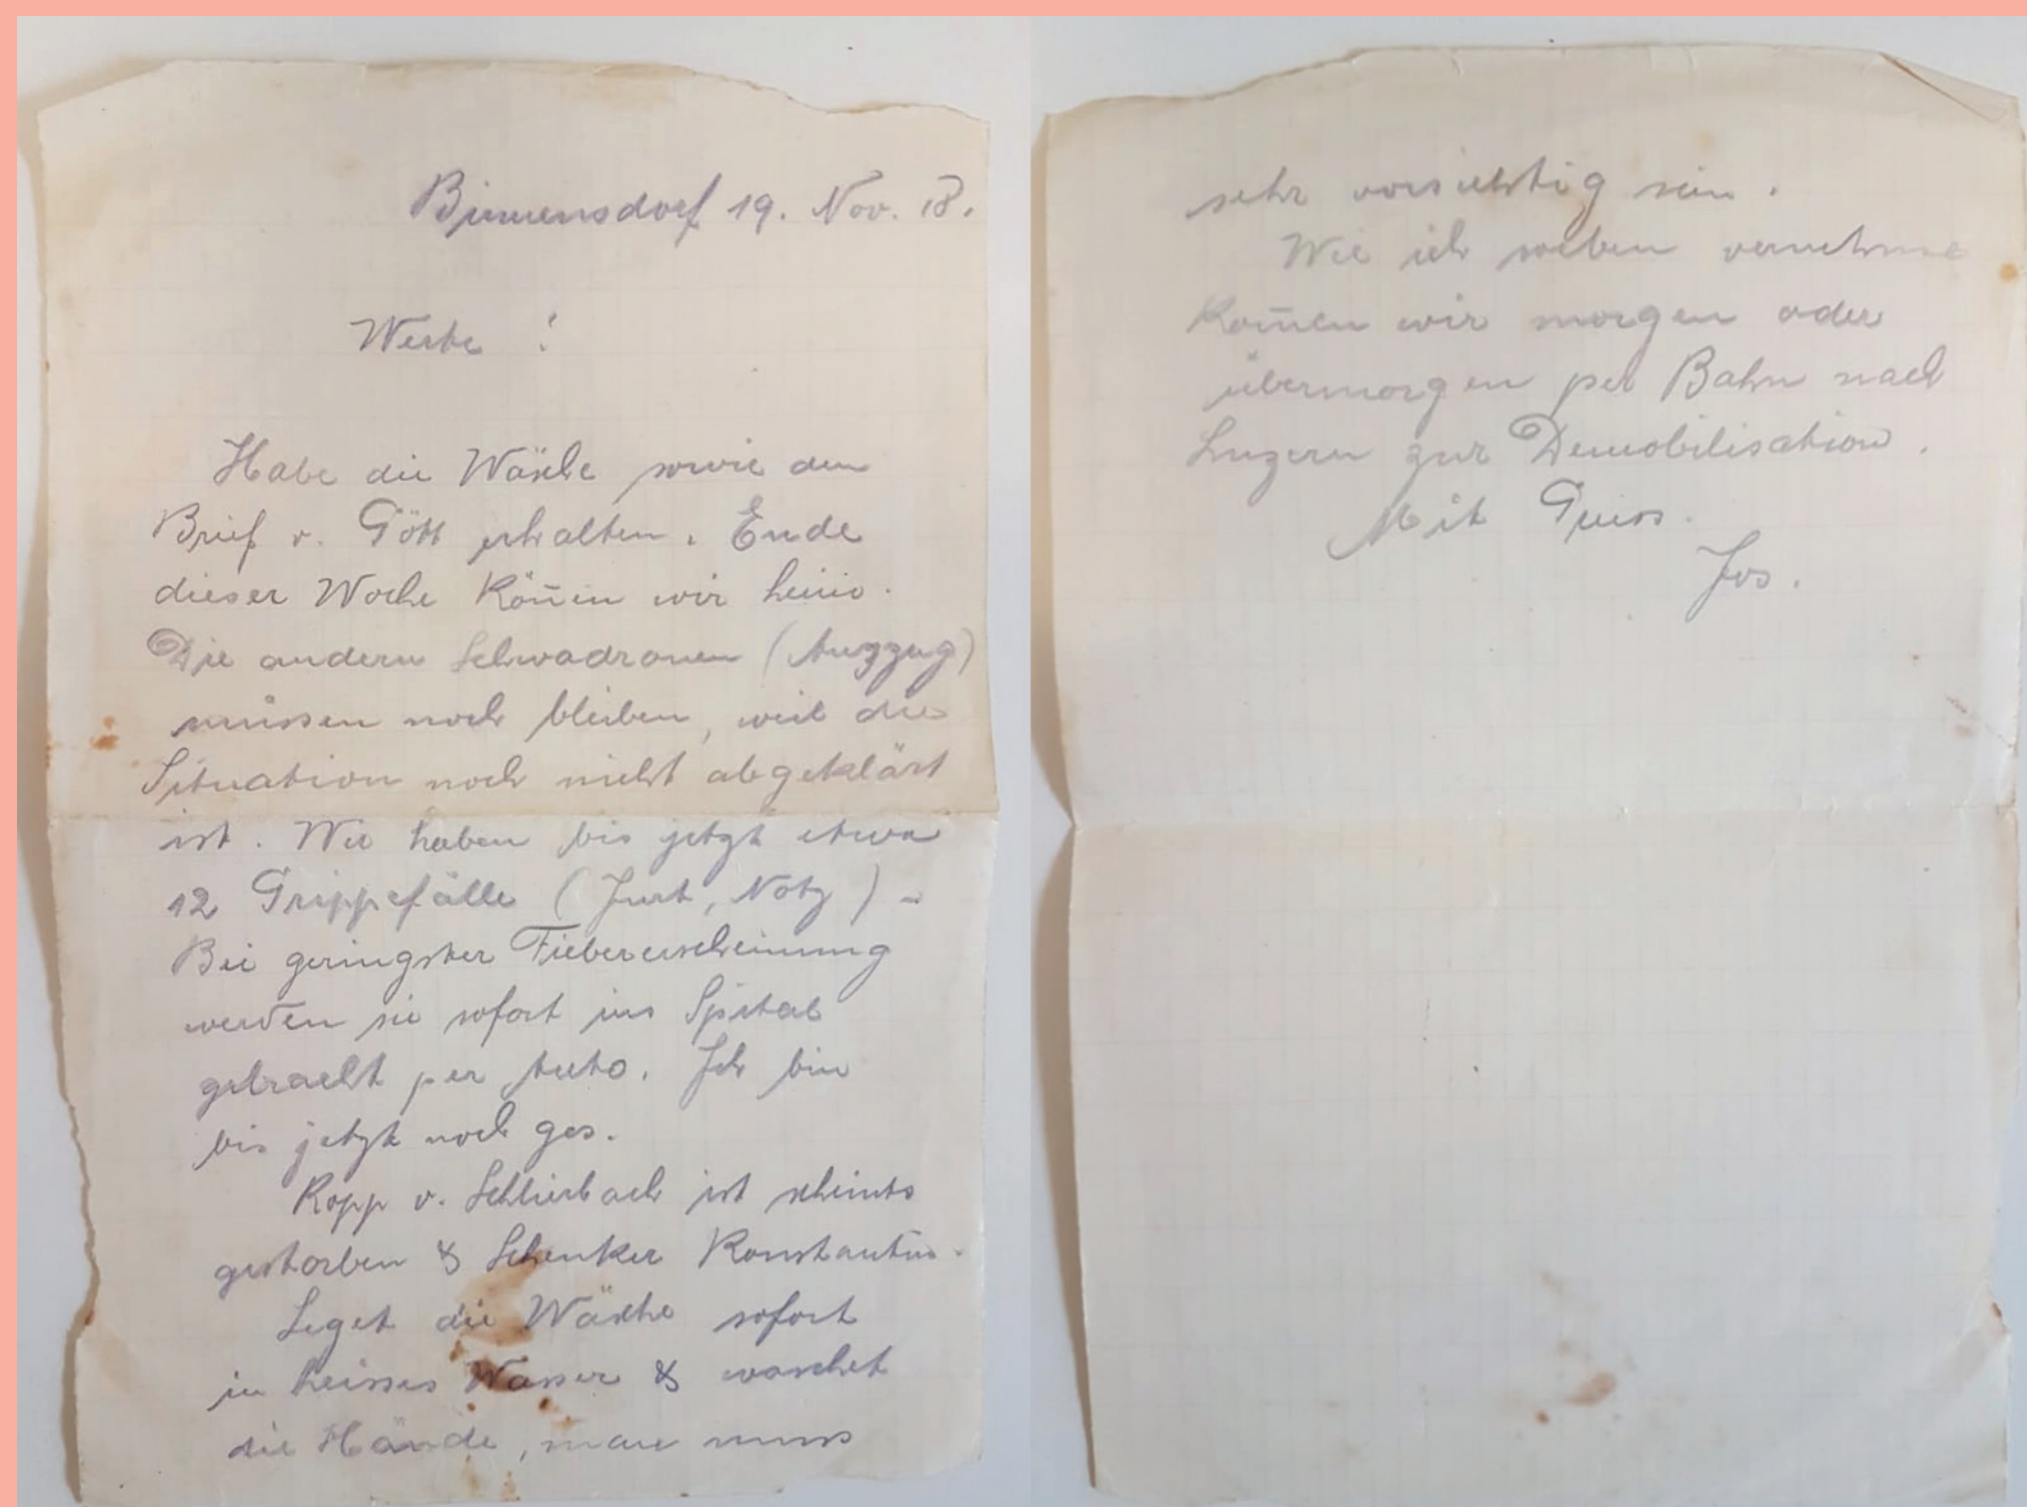 Birmensdorf 19. Nov. 18.
Werte !
Habe die Wäsche sowie den
Brief v. Gött erhalten. Ende
dieser Woche kön̄en wir heim.
Die andern Schwadronen (Auszug)
müssen noch bleiben, weil die
Situation noch nicht abgeklärt
ist. Wir haben bis jetzt etwa
12 Grippefälle (Jurt, Notz) -
Bei geringster Fiebererscheinung
werden sie sofort ins Spital
gebracht per Auto. Ich bin
bis jetzt noch ges.
Kopp v. Schlierbach ist scheints
gestorben & Schenker Konstantin.
Leget die Wäsche sofort
in heisses Wasser & waschet
die Hände, man muss
sehr vorsichtig sein.
Wie ich soeben vernehme
kom̄en wir morgen oder
übermorgen per Bahn nach
Luzern zur Demobilisation.
Mit Gruss.
Jos.